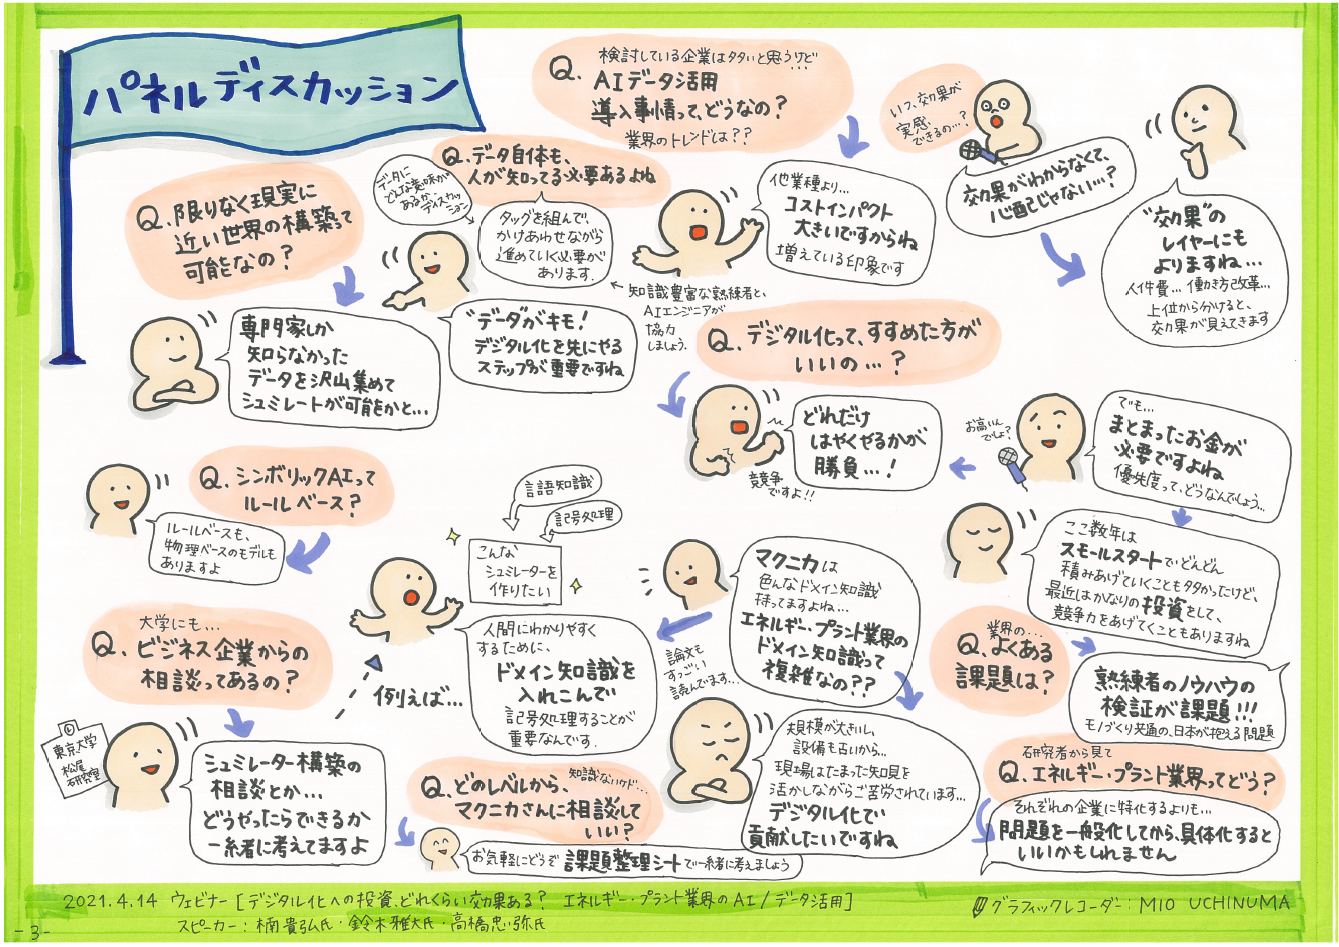 パネルディスカッション
検討している企業は多いと思うけど…
Q. AIデータ活用
導入事情って、どうなの？
業界のトレンドは？？
他業種より…
コストインパクト
大きいですからね
増えている印象です
いつ、効果が
実感
できるの…？
効果がわからなくて、
心配じゃない…？
"効果"の
レイヤーにも
よりますね…
人件費… 働き方改革…
上位から分けると、
効果が見えてきます
Q. データ自体も、
人が知ってる必要あるよね
データに
どんな意味が
あるか、
ディスカッション
タッグを組んで、
かけあわせながら
進めていく必要が
あります.
知識豊富な熟練者と、
AIエンジニアが
協力
しましょう.
"データ"がキモ！
デジタル化を先にやる
ステップが重要ですね
Q. 限りなく現実に
近い世界の構築って
可能なの？
専門家しか
知らなかった
データを沢山集めて
シュミレートが可能かと…
Q. デジタル化って、すすめた方が
いいの…？
どれだけ
はやくやるかが
勝負…！
競争
ですよ!!
お高いん
でしょ？
でも…
まとまったお金が
必要ですよね
優先度って、どうなんでしょう…
ここ数年は
スモールスタートでどんどん
積みあげていくことも多かったけど、
最近はかなりの投資をして、
競争力をあげてくこともありますね
Q. シンボリックAIって
ルールベース？
ルールベースも、
物理ベースのモデルも
ありますよ
大学にも…
Q. ビジネス企業からの
相談ってあるの？
東京大学
松尾
研究室
シュミレーター構築の
相談とか…
どうやったらできるか
一緒に考えてますよ
例えば…
言語知識
記号処理
こんな
シュミレーターを
作りたい
人間にわかりやすく
するために、
ドメイン知識を
入れこんで
記号処理することが
重要なんです.
マクニカは
色んなドメイン知識
持ってますよね…
エネルギー・プラント業界の
ドメイン知識って
複雑なの？？
論文も
すっごい
読んでます…
規模が大きいし、
設備も古いから…
現場はたまった知見を
活かしながらご苦労されています…
デジタル化で
貢献したいですね
業界の…
Q. よくある
課題は？
熟練者のノウハウの
検証が課題!!!
モノづくり共通の、日本が抱える問題
研究者から見て
Q. エネルギー・プラント業界ってどう？
それぞれの企業に特化するよりも…
問題を一般化してから、具体化すると
いいかもしれません
知識ないけど…
Q. どのレベルから、
マクニカさんに相談して
いい？
お気軽にどうぞ 課題整理シートで一緒に考えましょう
2021.4.14 ウェビナー [デジタル化への投資、どれくらい効果ある？ エネルギー・プラント業界のAI/データ活用]
スピーカー：楠貴弘氏・鈴木雅大氏・高橋忠弥氏
グラフィックレコーダー：MIO UCHINUMA
-3-